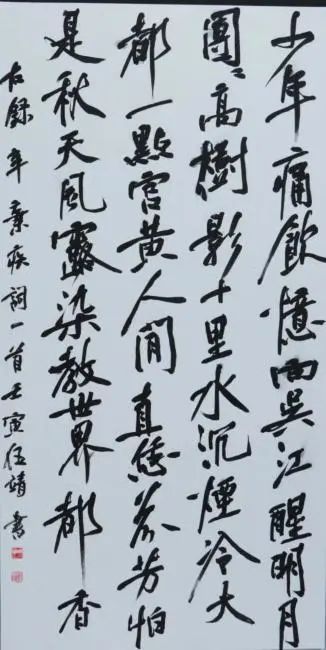 少年痛飲憶向吳江醒明月
團々高樹影十里水沉煙冷大
都一點宮黃人間直恁芬芳怕
是秋天風露染教世界都香
右錄辛棄疾詞一首壬寅伍靖書